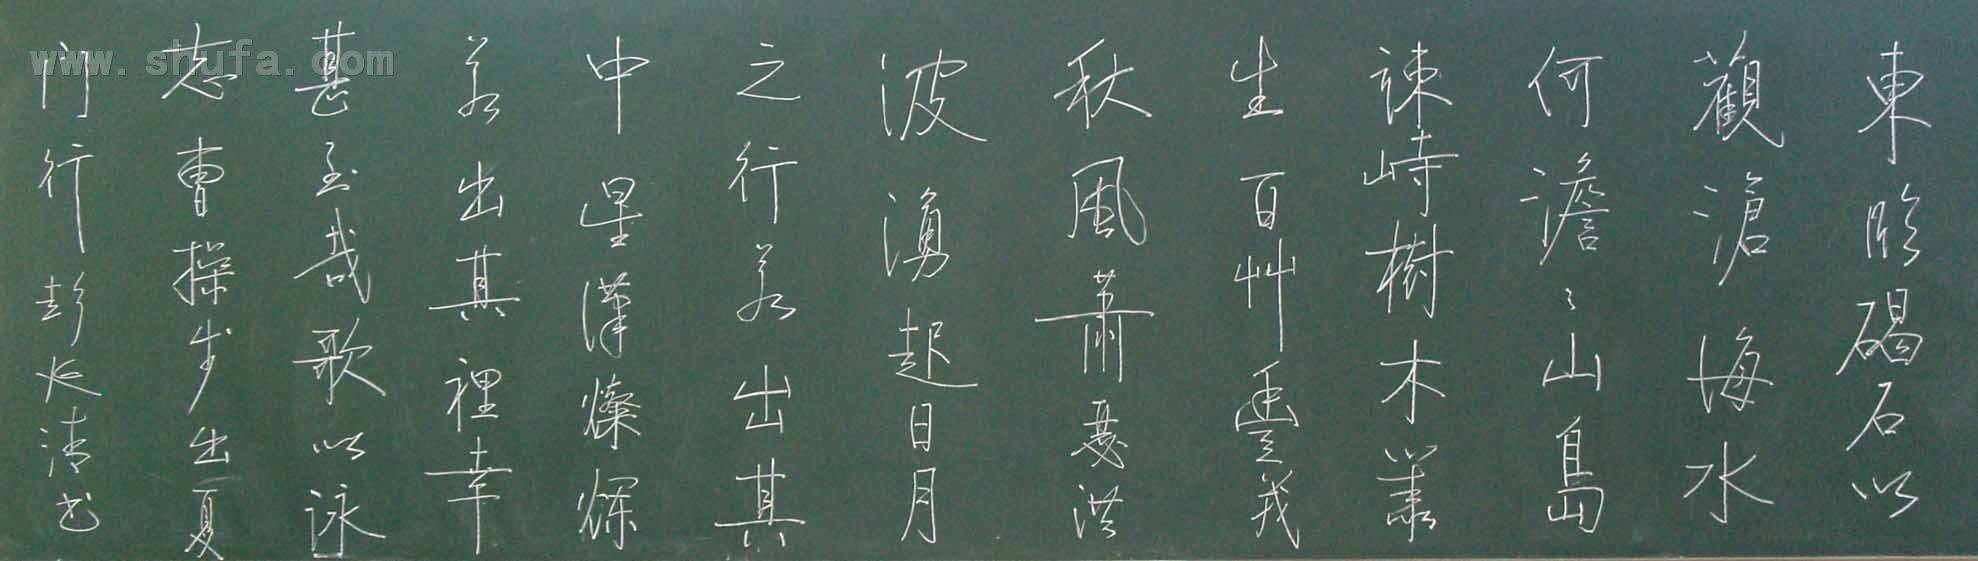 東臨碣石以
觀滄海水
何澹〻山島
竦峙樹木叢
生百艸豐茂
秋風蕭瑟洪
波湧起日月
之行若出其
中星漢燦爛
若出其裡幸
甚至哉歌以詠
志曹操步出夏
门行彭延清书
www.shufa.com